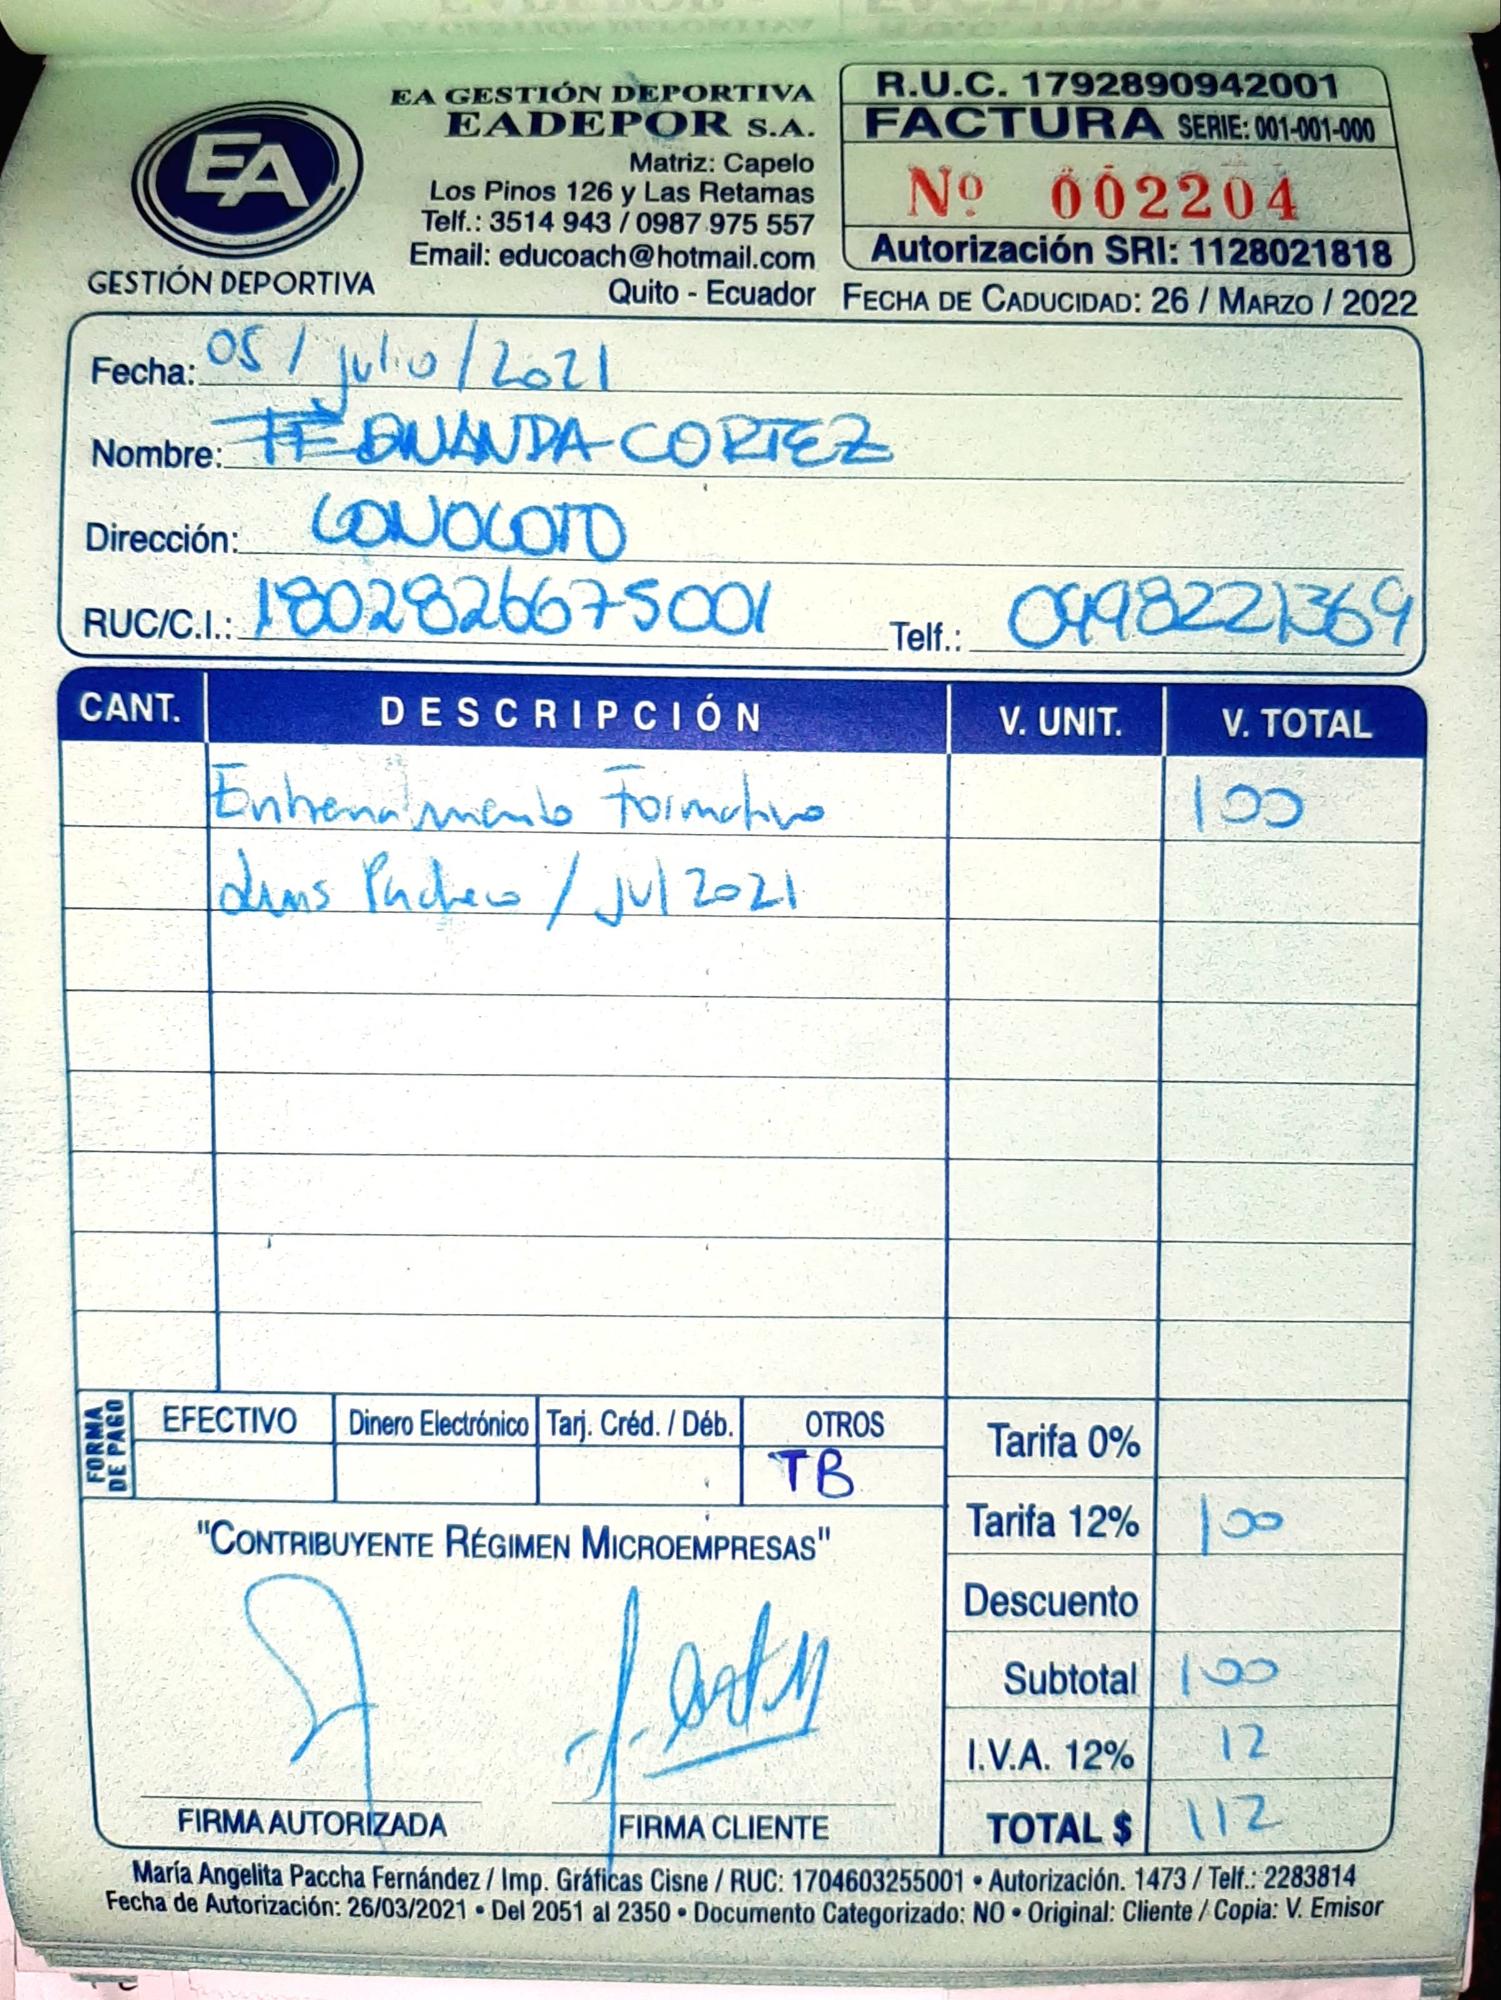 EA
GESTIÓN DEPORTIVA
EA GESTIÓN DEPORTIVA
EADEPOR S.A.
Matriz: Capelo
Los Pinos 126 y Las Retamas
Telf.: 3514 943 / 0987 975 557
Email: educoach@hotmail.com
Quito - Ecuador
R.U.C. 1792890942001
FACTURA SERIE: 001-001-000
Nº 002204
Autorización SRI: 1128021818
FECHA DE CADUCIDAD: 26 / MARZO / 2022
Fecha: 05 / julio / 2021
Nombre: FERNANDA CORTEZ
Dirección: CONOCOTO
RUC/C.I.: 1802826675001 Telf.: 0998221369
CANT. DESCRIPCIÓN V. UNIT. V. TOTAL
Entrenamiento Formativo 100
Luis Pacheco / jul 2021
FORMA DE PAGO
EFECTIVO Dinero Electrónico Tarj. Créd. / Déb. OTROS
TB
Tarifa 0%
Tarifa 12% 100
Descuento
Subtotal 100
I.V.A. 12% 12
TOTAL $ 112
"CONTRIBUYENTE RÉGIMEN MICROEMPRESAS"
FIRMA AUTORIZADA FIRMA CLIENTE
María Angelita Paccha Fernández / Imp. Gráficas Cisne / RUC: 1704603255001 • Autorización. 1473 / Telf.: 2283814
Fecha de Autorización: 26/03/2021 • Del 2051 al 2350 • Documento Categorizado: NO • Original: Cliente / Copia: V. Emisor